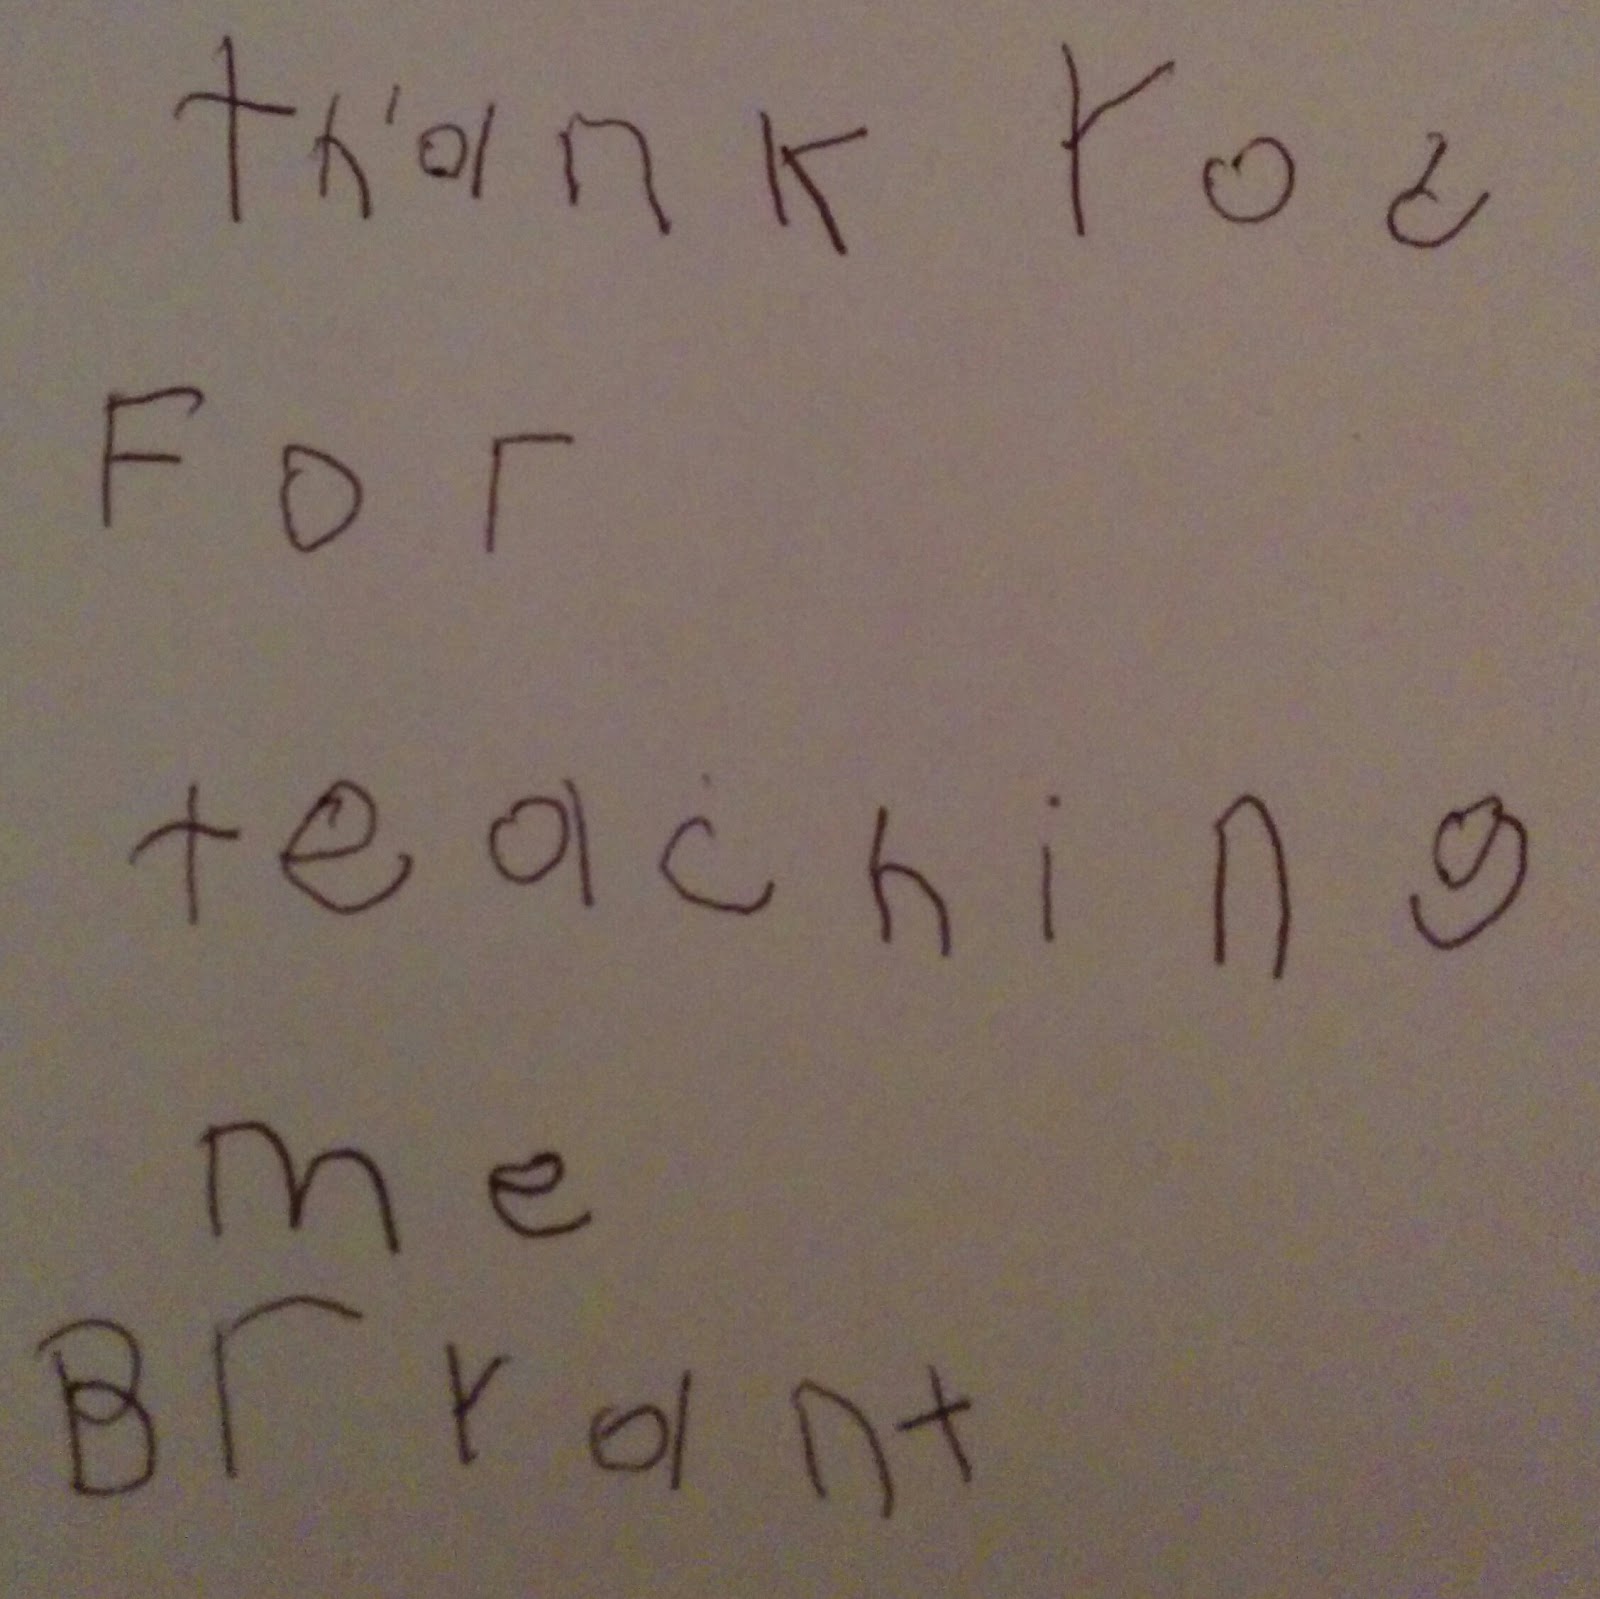 thank you
For
teaching
me
Bryant